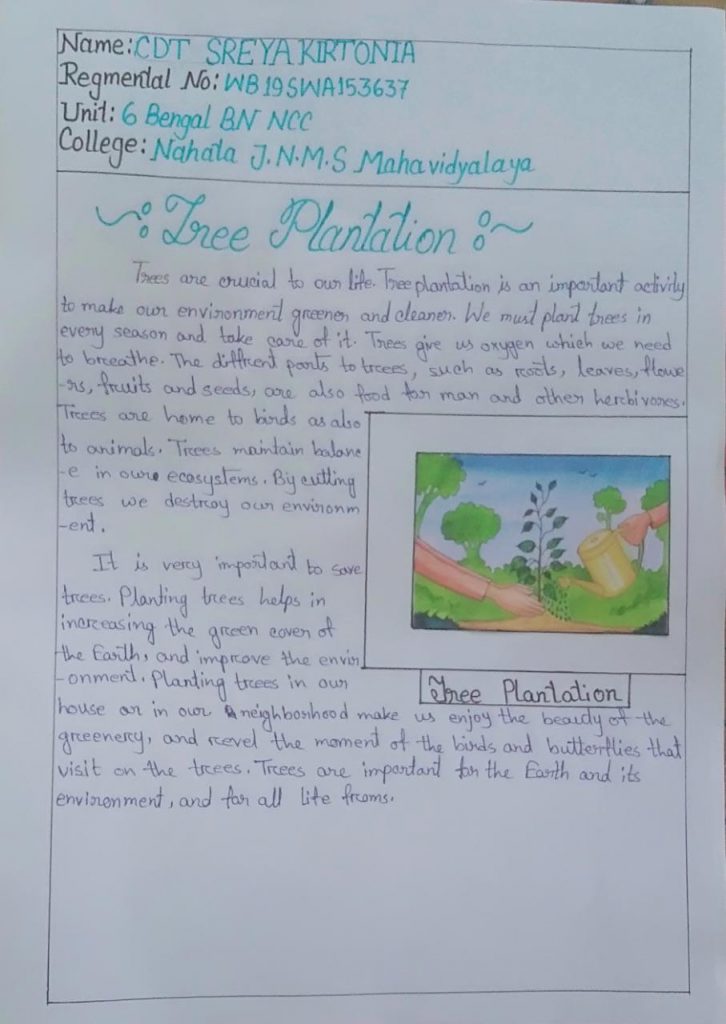 Name: CDT SREYA KIRTONIA
Regmental No: WB19SWA153637
Unit: 6 Bengal BN NCC
College: Nahata J.N.M.S Mahavidyalaya
Tree Plantation
Trees are crucial to our life. Tree plantation is an important activity
to make our environment greener and cleaner. We must plant trees in
every season and take care of it. Trees give us oxygen which we need
to breathe. The diffrent parts to trees, such as roots, leaves, flowe
-rs, fruits and seeds, are also food for man and other herbivores.
Trees are home to birds as also
to animals. Trees maintain balanc
-e in our ecosystems. By cutting
trees we destroy our environm
-ent.
It is very important to save
trees. Planting trees helps in
increasing the green cover of
the Earth, and improve the envir
-onment. Planting trees in our
house or in our neighborhood make us enjoy the beauty of the
greenery, and revel the moment of the birds and butterflies that
visit on the trees. Trees are important for the Earth and its
environment, and for all life froms.
Tree Plantation